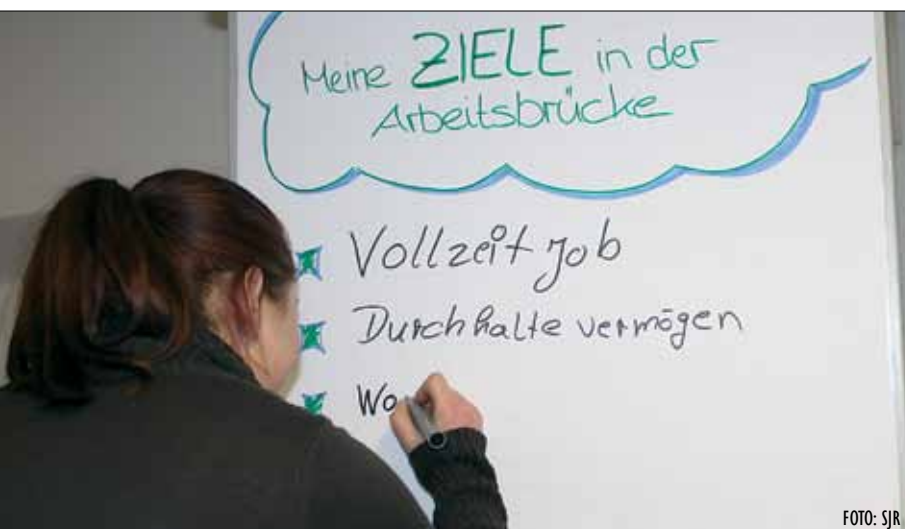 Meine ZIELE in der
Arbeitsbrücke
Vollzeit Job
Durchhalte vermögen
Wo
FOTO: SJR